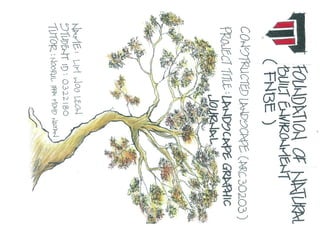 FOUNDATION OF NATURAL
BUILT ENVIRONMENT
( FNBE )
CONSTRUCTED LANDSCAPE (ARC30203)
PROJECT TITLE : LANDSCAPE GRAPHIC
JOURNAL
NAME : LIM WOU LEON
STUDENT ID : 0322180
TUTOR : NORUL